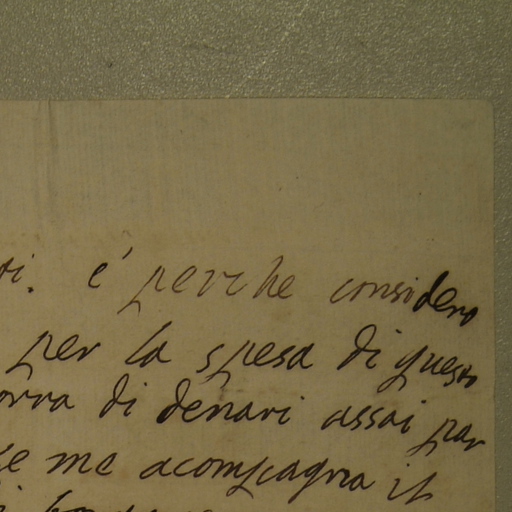 ti. e' perche considero
per la spesa di questo
orra di denari assai par
me acompagna il